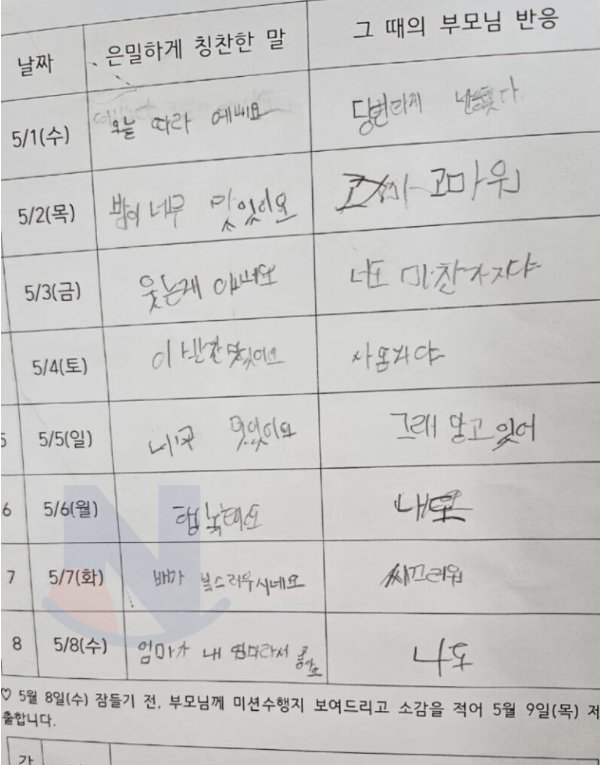 날짜 은밀하게 칭찬한 말 그 때의 부모님 반응
5/1(수) 오늘 따라 예뻐요 당연하지
5/2(목) 밥이 너무 맛있어요 고마워
5/3(금) 웃는게 너도 마찬가지야
5/4(토) 이 맛있어요 사온거야
5 5/5(일) 너무 맛있어요 그래 알고 있어
6 5/6(월) 행복해요 내도
7 5/7(화) 배가 부드러우시네요 시끄러워
8 5/8(수) 엄마가 내 엄마라서 좋아요 나도
♡ 5월 8일(수) 잠들기 전, 부모님께 미션수행지 보여드리고 소감을 적어 5월 9일(목) 제
출합니다.